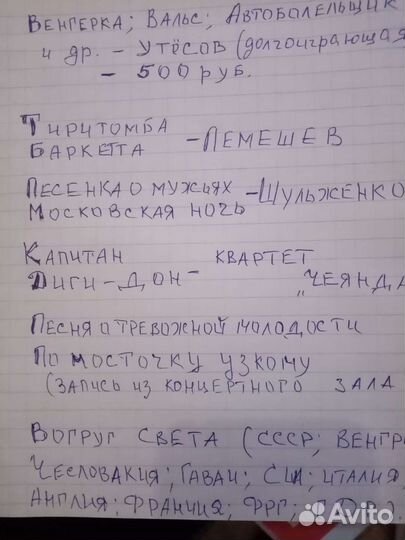 Венгерка; Вальс; Автоболельщик
и др. – Утёсов (долгоиграющая
– 500 руб.
Тиритомба
Баркетта – Лемешев
Песенка о мужьях – Шульженко
Московская ночь
Капитан квартет
Диги-дон – „Чеянда
Песня о тревожной молодости
По мосточку узкому
(запись из концертного зала
Вогруг света (СССР; Венгр
Чесловакия; Гаваи; США; Италия
Англия; Франция; ФРГ;
Avito